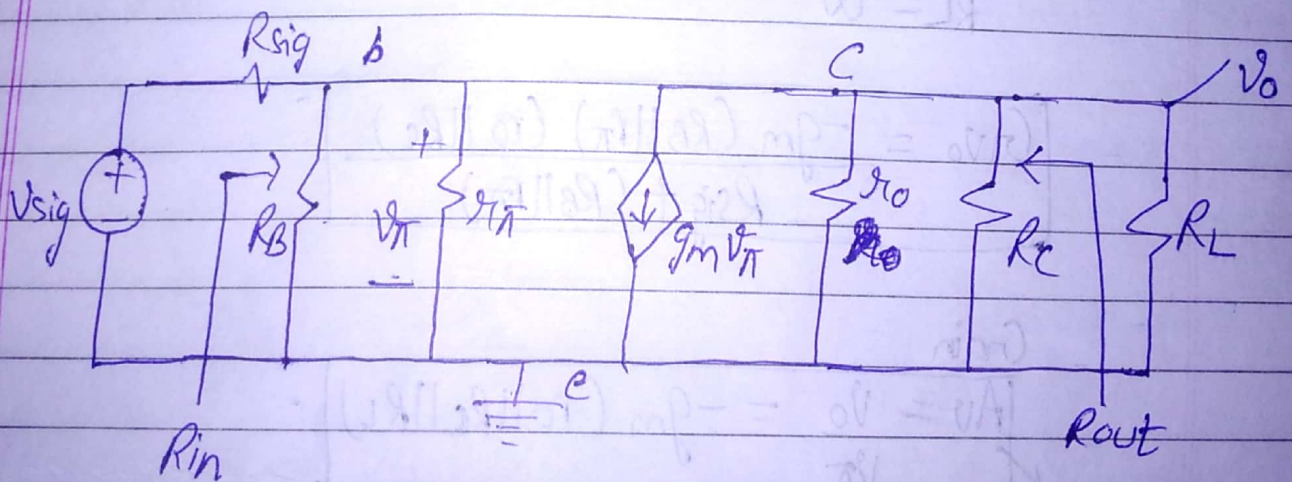 Rsig b C vo
+
Vsig + − RB vπ rπ gmvπ ro RC RL
−
e
Rin Rout